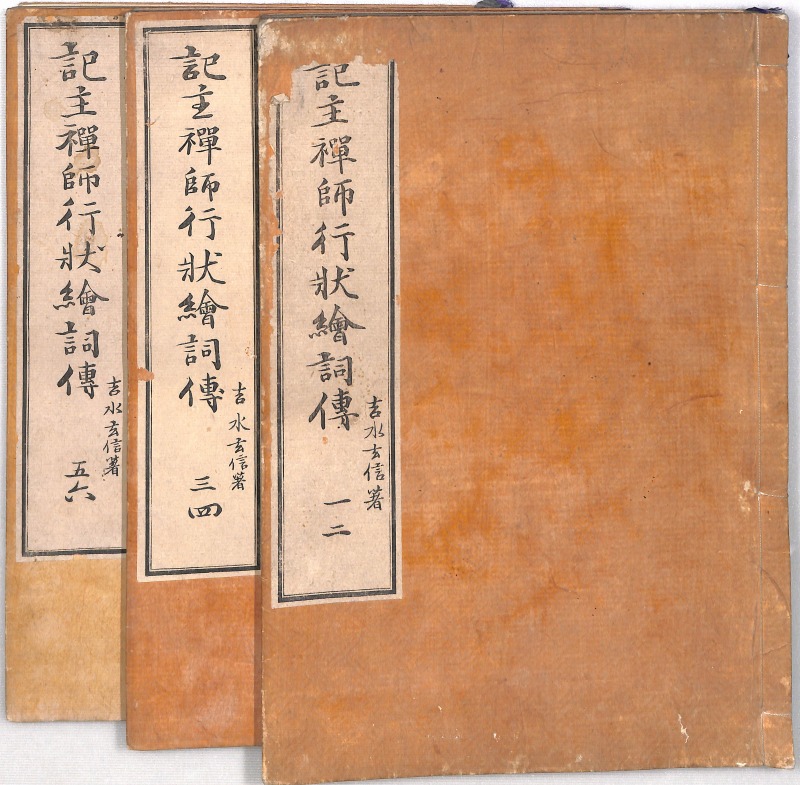 記主禪師行狀繪詞傳
吉水玄信著
一二
記主禪師行狀繪詞傳
吉水玄信著
三四
記主禪師行狀繪詞傳
吉水玄信著
五六